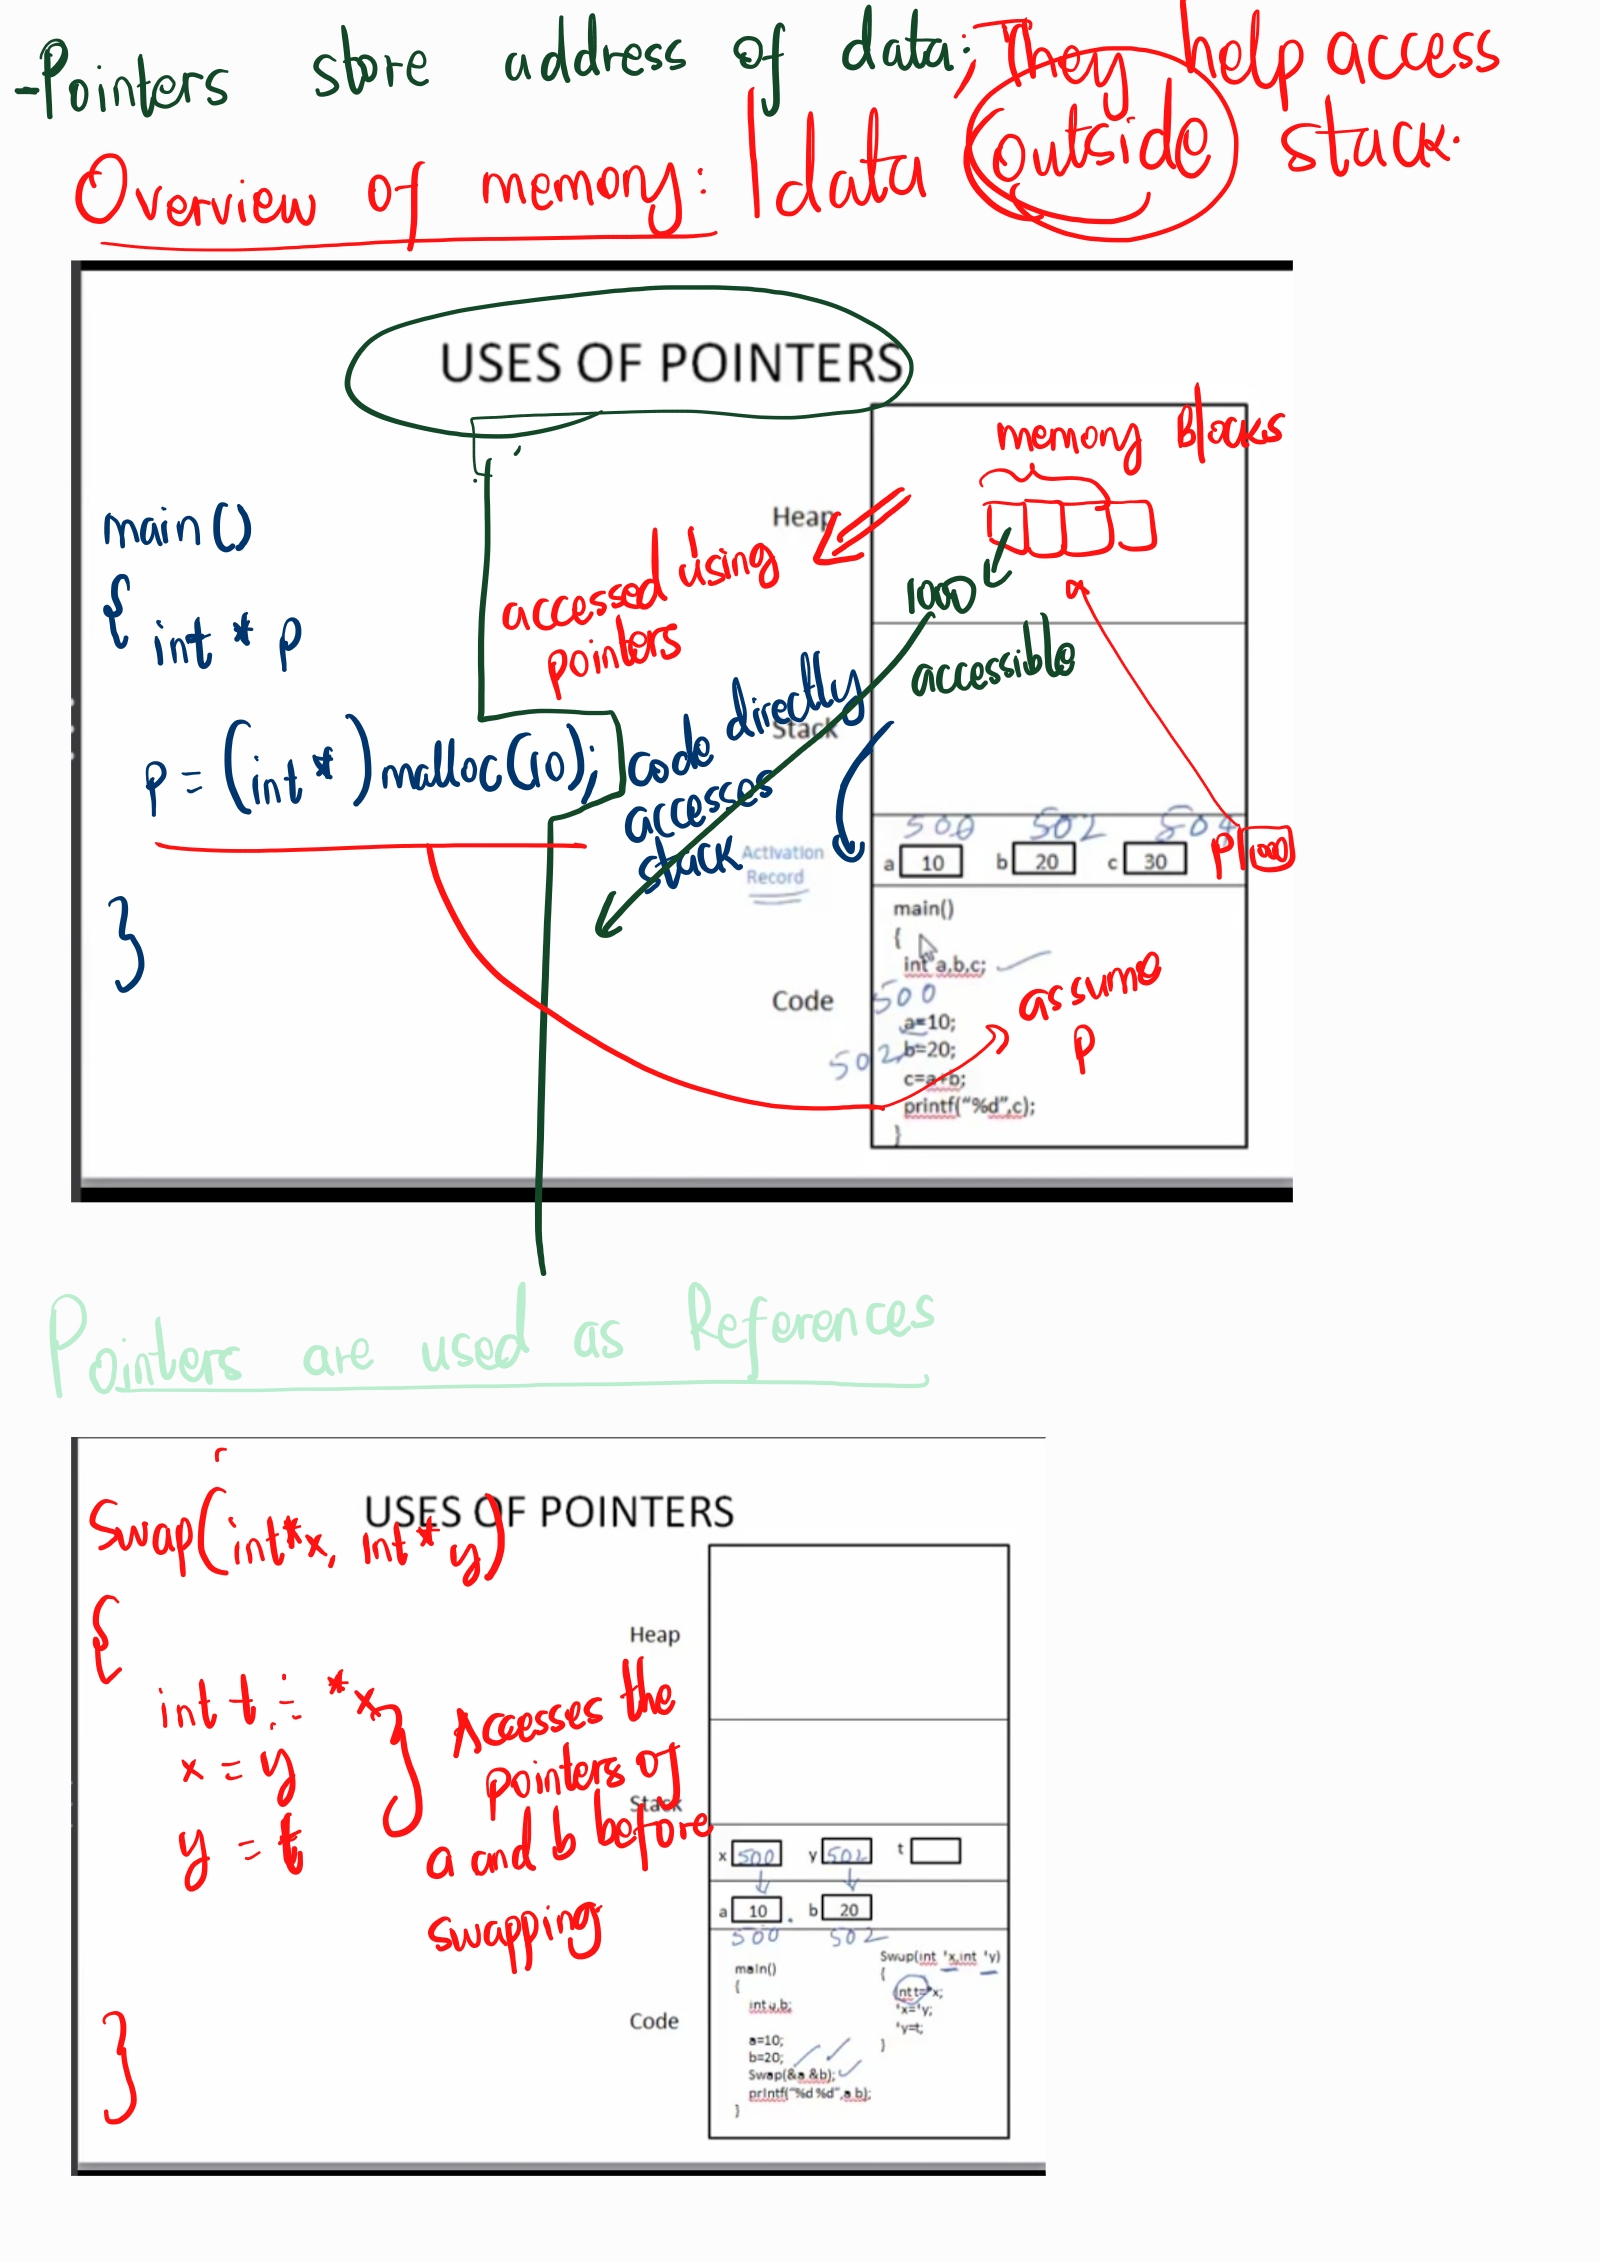 -Pointers store address of data; They help access
data outside stack.
Overview of memory:
USES OF POINTERS
memory Blocks
Heap
main()
{
int * p
p = (int *) malloc(10);
}
accessed using
pointers
1000
accessible
code directly
accesses
stack
Stack
500 502 504
a 10 b 20 c 30 p 1000
Activation
Record
Code
main()
{
int a,b,c;
500
a=10;
502 b=20;
c=a+b;
printf("%d",c);
}
assume
p
Pointers are used as References
USES OF POINTERS
Swap(int*x, int*y)
{
int t = *x
x = y
y = t
}
Accesses the
pointers of
a and b before
swapping
Heap
Stack
x 500 y 502 t
a 10 b 20
500 502
Code
main()
{
int a,b;
a=10;
b=20;
Swap(&a &b);
printf("%d %d",a b);
}
Swap(int *x,int *y)
{
int t=*x;
*x=*y;
*y=t;
}